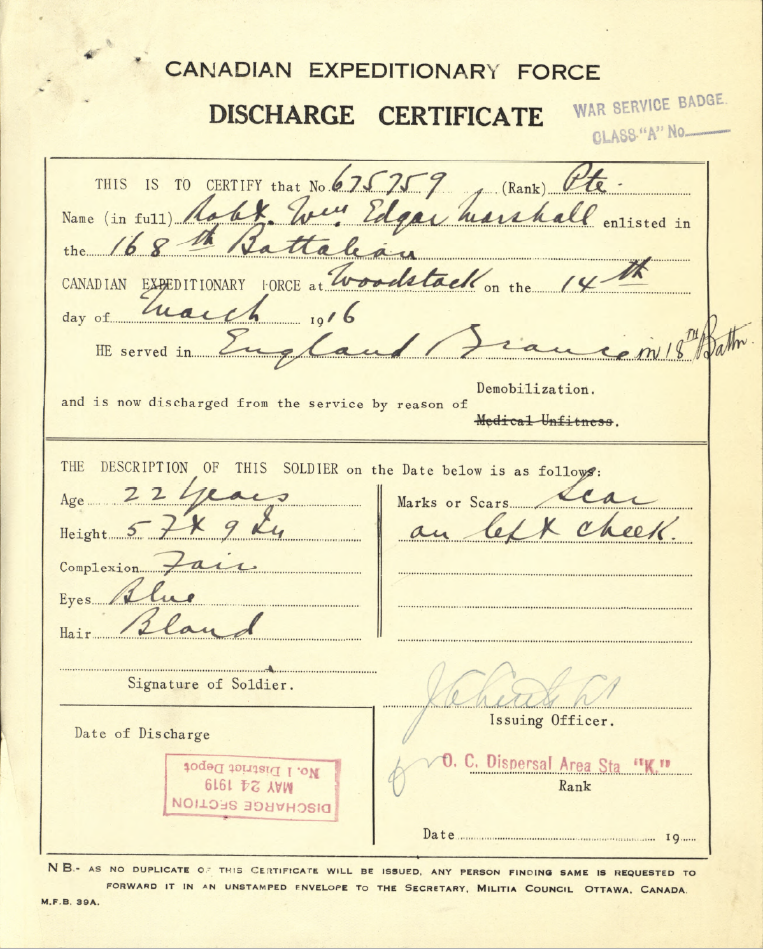 CANADIAN EXPEDITIONARY FORCE
DISCHARGE CERTIFICATE
WAR SERVICE BADGE.
CLASS "A" No
THIS IS TO CERTIFY that No. 675759 (Rank) Pte.
Name (in full) Robt. Wm. Edgar Marshall enlisted in
the 168th Battalion
CANADIAN EXPEDITIONARY FORCE at Woodstock on the 14th
day of March 1916
HE served in England France in 18TH Battn.
Demobilization.
and is now discharged from the service by reason of
Medical Unfitness.
THE DESCRIPTION OF THIS SOLDIER on the Date below is as follows:
Age 22 Years
Height 5 Ft 9 In
Complexion Fair
Eyes Blue
Hair Blond
Marks or Scars Scar
on left cheek.
Signature of Soldier.
Issuing Officer.
Date of Discharge
DISCHARGE SECTION
MAY 24 1919
No. 1 District Depot
for O. C. Dispersal Area Sta "K."
Rank
Date 19
N B.- AS NO DUPLICATE OF THIS CERTIFICATE WILL BE ISSUED, ANY PERSON FINDING SAME IS REQUESTED TO
FORWARD IT IN AN UNSTAMPED ENVELOPE TO THE SECRETARY, MILITIA COUNCIL OTTAWA, CANADA.
M.F.B. 39A.